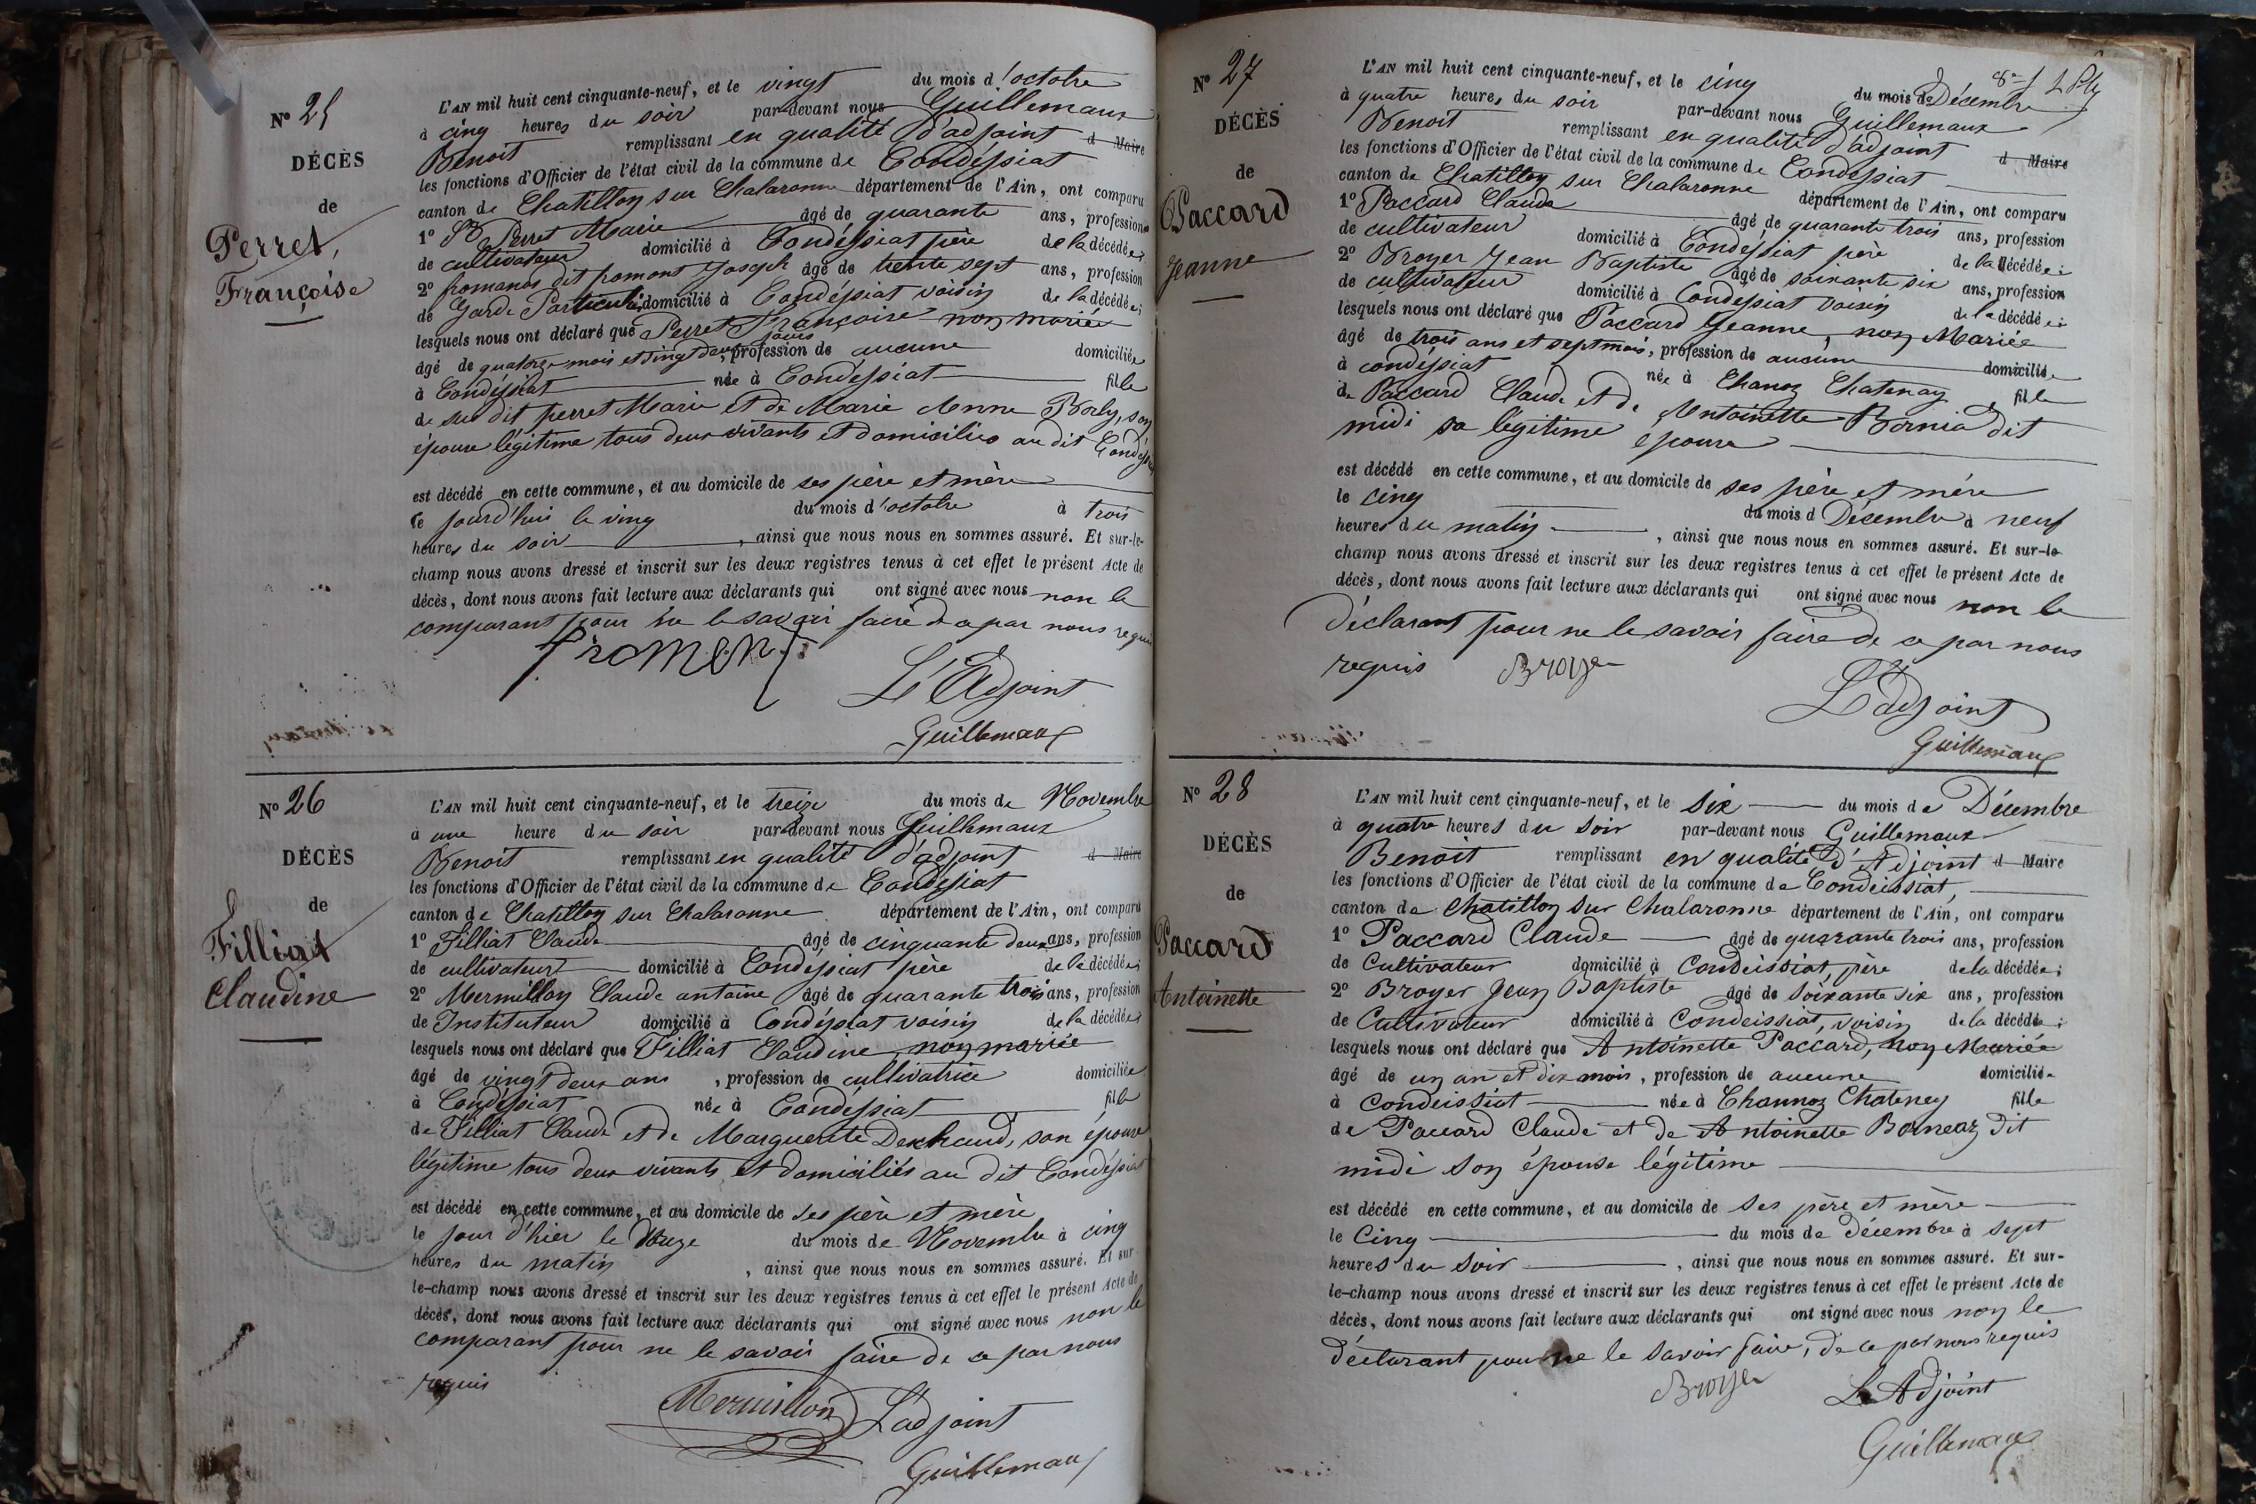 N° 25
DÉCÈS
de
Perret,
Françoise
L'AN mil huit cent cinquante-neuf, et le vingt du mois d'octobre
à cinq heures du soir par-devant nous Guillemaux
Benoit remplissant en qualité d'adjoint d Maire
les fonctions d'Officier de l'état civil de la commune de Condéssiat
canton de Chatillon sur Chalaronne département de l'Ain, ont comparu
1° Perret Marie âgé de quarante ans, profession
de cultivateur domicilié à Condéssiat père de la décédée;
2° fromand dit fromont Joseph âgé de trente sept ans, profession
de Garde Particulier domicilié à Condéssiat voisin de la décédée;
lesquels nous ont déclaré que Perret Françoise non mariée
âgé de quatorze mois et vingt deux jours, profession de aucune domiciliée
à Condéssiat née à Condéssiat fille
de sus dit perret Marie et de Marie Anne Borly, son
épouse légitime tous deux vivants et domiciliés au dit Condéssiat
est décédé en cette commune, et au domicile de ses père et mère
le jourd'hui le vingt du mois d'octobre à trois
heures du soir, ainsi que nous nous en sommes assuré. Et sur-le-
champ nous avons dressé et inscrit sur les deux registres tenus à cet effet le présent Acte de
décès, dont nous avons fait lecture aux déclarants qui ont signé avec nous non le
comparant pour ne le savoir faire de ce par nous requis
froment
L'Adjoint
Guillemaux
N° 26
DÉCÈS
de
Filliat
Claudine
L'AN mil huit cent cinquante-neuf, et le treize du mois de Novembre
à une heure du soir par-devant nous Guillemaux
Benoit remplissant en qualité d'adjoint d Maire
les fonctions d'Officier de l'état civil de la commune de Condéssiat
canton de Chatillon sur Chalaronne département de l'Ain, ont comparu
1° Filliat Claude âgé de cinquante deux ans, profession
de cultivateur domicilié à Condéssiat père de la décédée;
2° Mermillon Claude antoine âgé de quarante trois ans, profession
de Instituteur domicilié à Condéssiat voisin de la décédée;
lesquels nous ont déclaré que Filliat Claudine non mariée
âgé de vingt deux ans, profession de cultivatrice domiciliée
à Condéssiat née à Condéssiat fille
de Filliat Claude et de Marguerite Dechaud, son épouse
légitime tous deux vivants et domiciliés au dit Condéssiat
est décédé en cette commune, et au domicile de ses père et mère
le jour d'hier le douze du mois de Novembre à cinq
heures du matin, ainsi que nous nous en sommes assuré. Et sur
le-champ nous avons dressé et inscrit sur les deux registres tenus à cet effet le présent Acte de
décès, dont nous avons fait lecture aux déclarants qui ont signé avec nous non le
comparant pour ne le savoir faire de ce par nous
requis
Mermillon L'adjoint
Guillemaux
N° 27
DÉCÈS
de
Paccard
Jeanne
L'AN mil huit cent cinquante-neuf, et le cinq du mois de Décembre
à quatre heures du soir par-devant nous Guillemaux
Benoit remplissant en qualité d'adjoint d Maire
les fonctions d'Officier de l'état civil de la commune de Condéssiat
canton de Chatillon sur Chalaronne département de l'Ain, ont comparu
1° Paccard Claude âgé de quarante trois ans, profession
de cultivateur domicilié à Condéssiat père de la décédée;
2° Broyer Jean Baptiste âgé de soixante six ans, profession
de cultivateur domicilié à Condéssiat voisin de la décédée;
lesquels nous ont déclaré que Paccard Jeanne, non Mariée
âgé de trois ans et sept mois, profession de aucune domicilié
à condéssiat née à Chanoz Chatenay, fille
de Paccard Claude et de Antoinette Bornia dit
midi sa légitime épouse
est décédé en cette commune, et au domicile de ses père et mère
le cinq du mois d Décembre à neuf
heures du matin, ainsi que nous nous en sommes assuré. Et sur-le
champ nous avons dressé et inscrit sur les deux registres tenus à cet effet le présent Acte de
décès, dont nous avons fait lecture aux déclarants qui ont signé avec nous non le
déclarant pour ne le savoir faire de ce par nous
requis Broyer
L'adjoint
Guillemaux
N° 28
DÉCÈS
de
Paccard
Antoinette
L'AN mil huit cent cinquante-neuf, et le six du mois de Décembre
à quatre heures du soir par-devant nous Guillemaux
Benoit remplissant en qualité d'Adjoint d Maire
les fonctions d'Officier de l'état civil de la commune de Condeissiat,
canton de Chatillon sur Chalaronne département de l'Ain, ont comparu
1° Paccard Claude âgé de quarante trois ans, profession
de Cultivateur domicilié à Condeissiat, père de la décédée;
2° Broyer Jean Baptiste âgé de soixante six ans, profession
de Cultivateur domicilié à Condeissiat, voisin de la décédée;
lesquels nous ont déclaré que Antoinette Paccard, non Mariée
âgé de un an et dix mois, profession de aucune domicilié
à Condeissiat née à Channoz Chateney fille
de Paccard Claude et de Antoinette Borneaz dit
midi son épouse légitime
est décédé en cette commune, et au domicile de ses père et mère
le Cinq du mois de décembre à sept
heures du soir, ainsi que nous nous en sommes assuré. Et sur-
le-champ nous avons dressé et inscrit sur les deux registres tenus à cet effet le présent Acte de
décès, dont nous avons fait lecture aux déclarants qui ont signé avec nous non le
déclarant pour ne le savoir faire, de ce par nous requis
Broyer L'Adjoint
Guillemaux